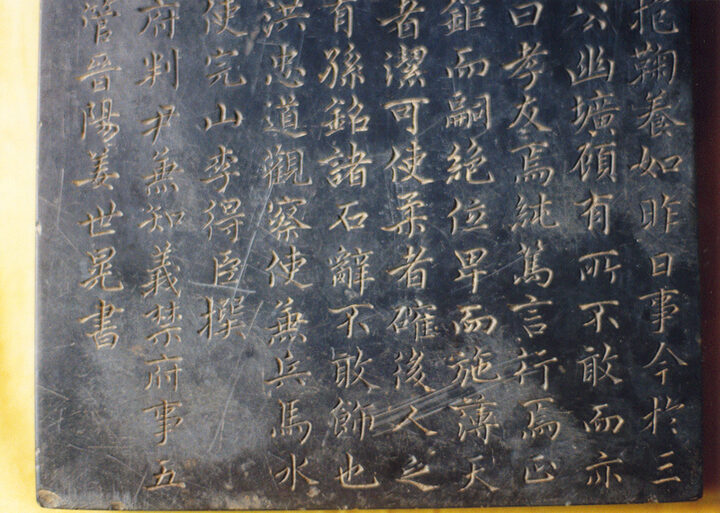 鞠養如昨日事今於三
公幽壙顧有所不敢而亦
曰孝友焉純篤言行焉正
鉅而嗣絶位卑而施薄天
者潔可使柔者確後人之
有孫銘諸石辭不敢飾也
洪忠道觀察使兼兵馬水
使完山李得臣撰
府判尹兼知義禁府事五
管晋陽姜世晃書